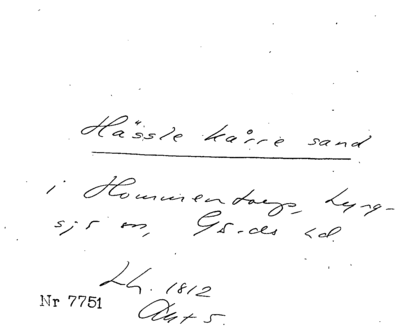 Hässle kårre sand
i Hommentorp, Lyng-
sjö sn, Gärds hd.
Lh. 1812
Akt 5.
Nr 7751